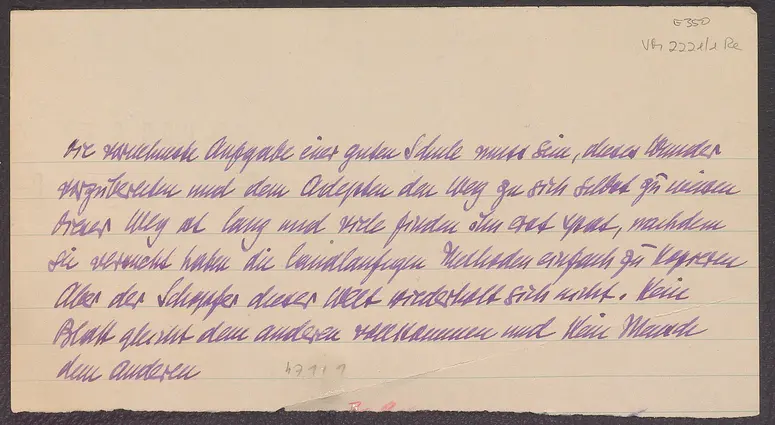 E350
VAr 2221/1 Re
Die vornehmste Aufgabe einer guten Schule muss sein, dieses Wunder
vorzubereiten und dem Adepten den Weg zu sich selbst zu weisen
Dieser Weg ist lang und viele finden ihn erst spät, nachdem
sie versucht haben die landläufigen Methoden einfach zu kopieren
Aber der Schöpfer dieser Welt wiederholt sich nicht. Kein
Blatt gleicht dem anderen vollkommen und kein Mensch
dem anderen